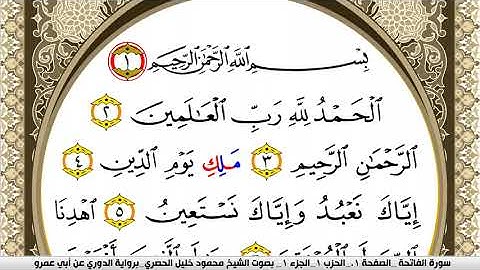 بِسْمِ اللَّهِ الرَّحْمَٰنِ الرَّحِيمِ ١
الْحَمْدُ لِلَّهِ رَبِّ الْعَٰلَمِينَ ٢
الرَّحْمَٰنِ الرَّحِيمِ ٣ مَلِكِ يَوْمِ الدِّينِ ٤
إِيَّاكَ نَعْبُدُ وَإِيَّاكَ نَسْتَعِينُ ٥ اهْدِنَا
سورة الفاتحة_الصفحة ١_ الحزب ١_الجزء ١_ بصوت الشيخ محمود خليل الحصري_برواية الدوري عن أبي عمرو